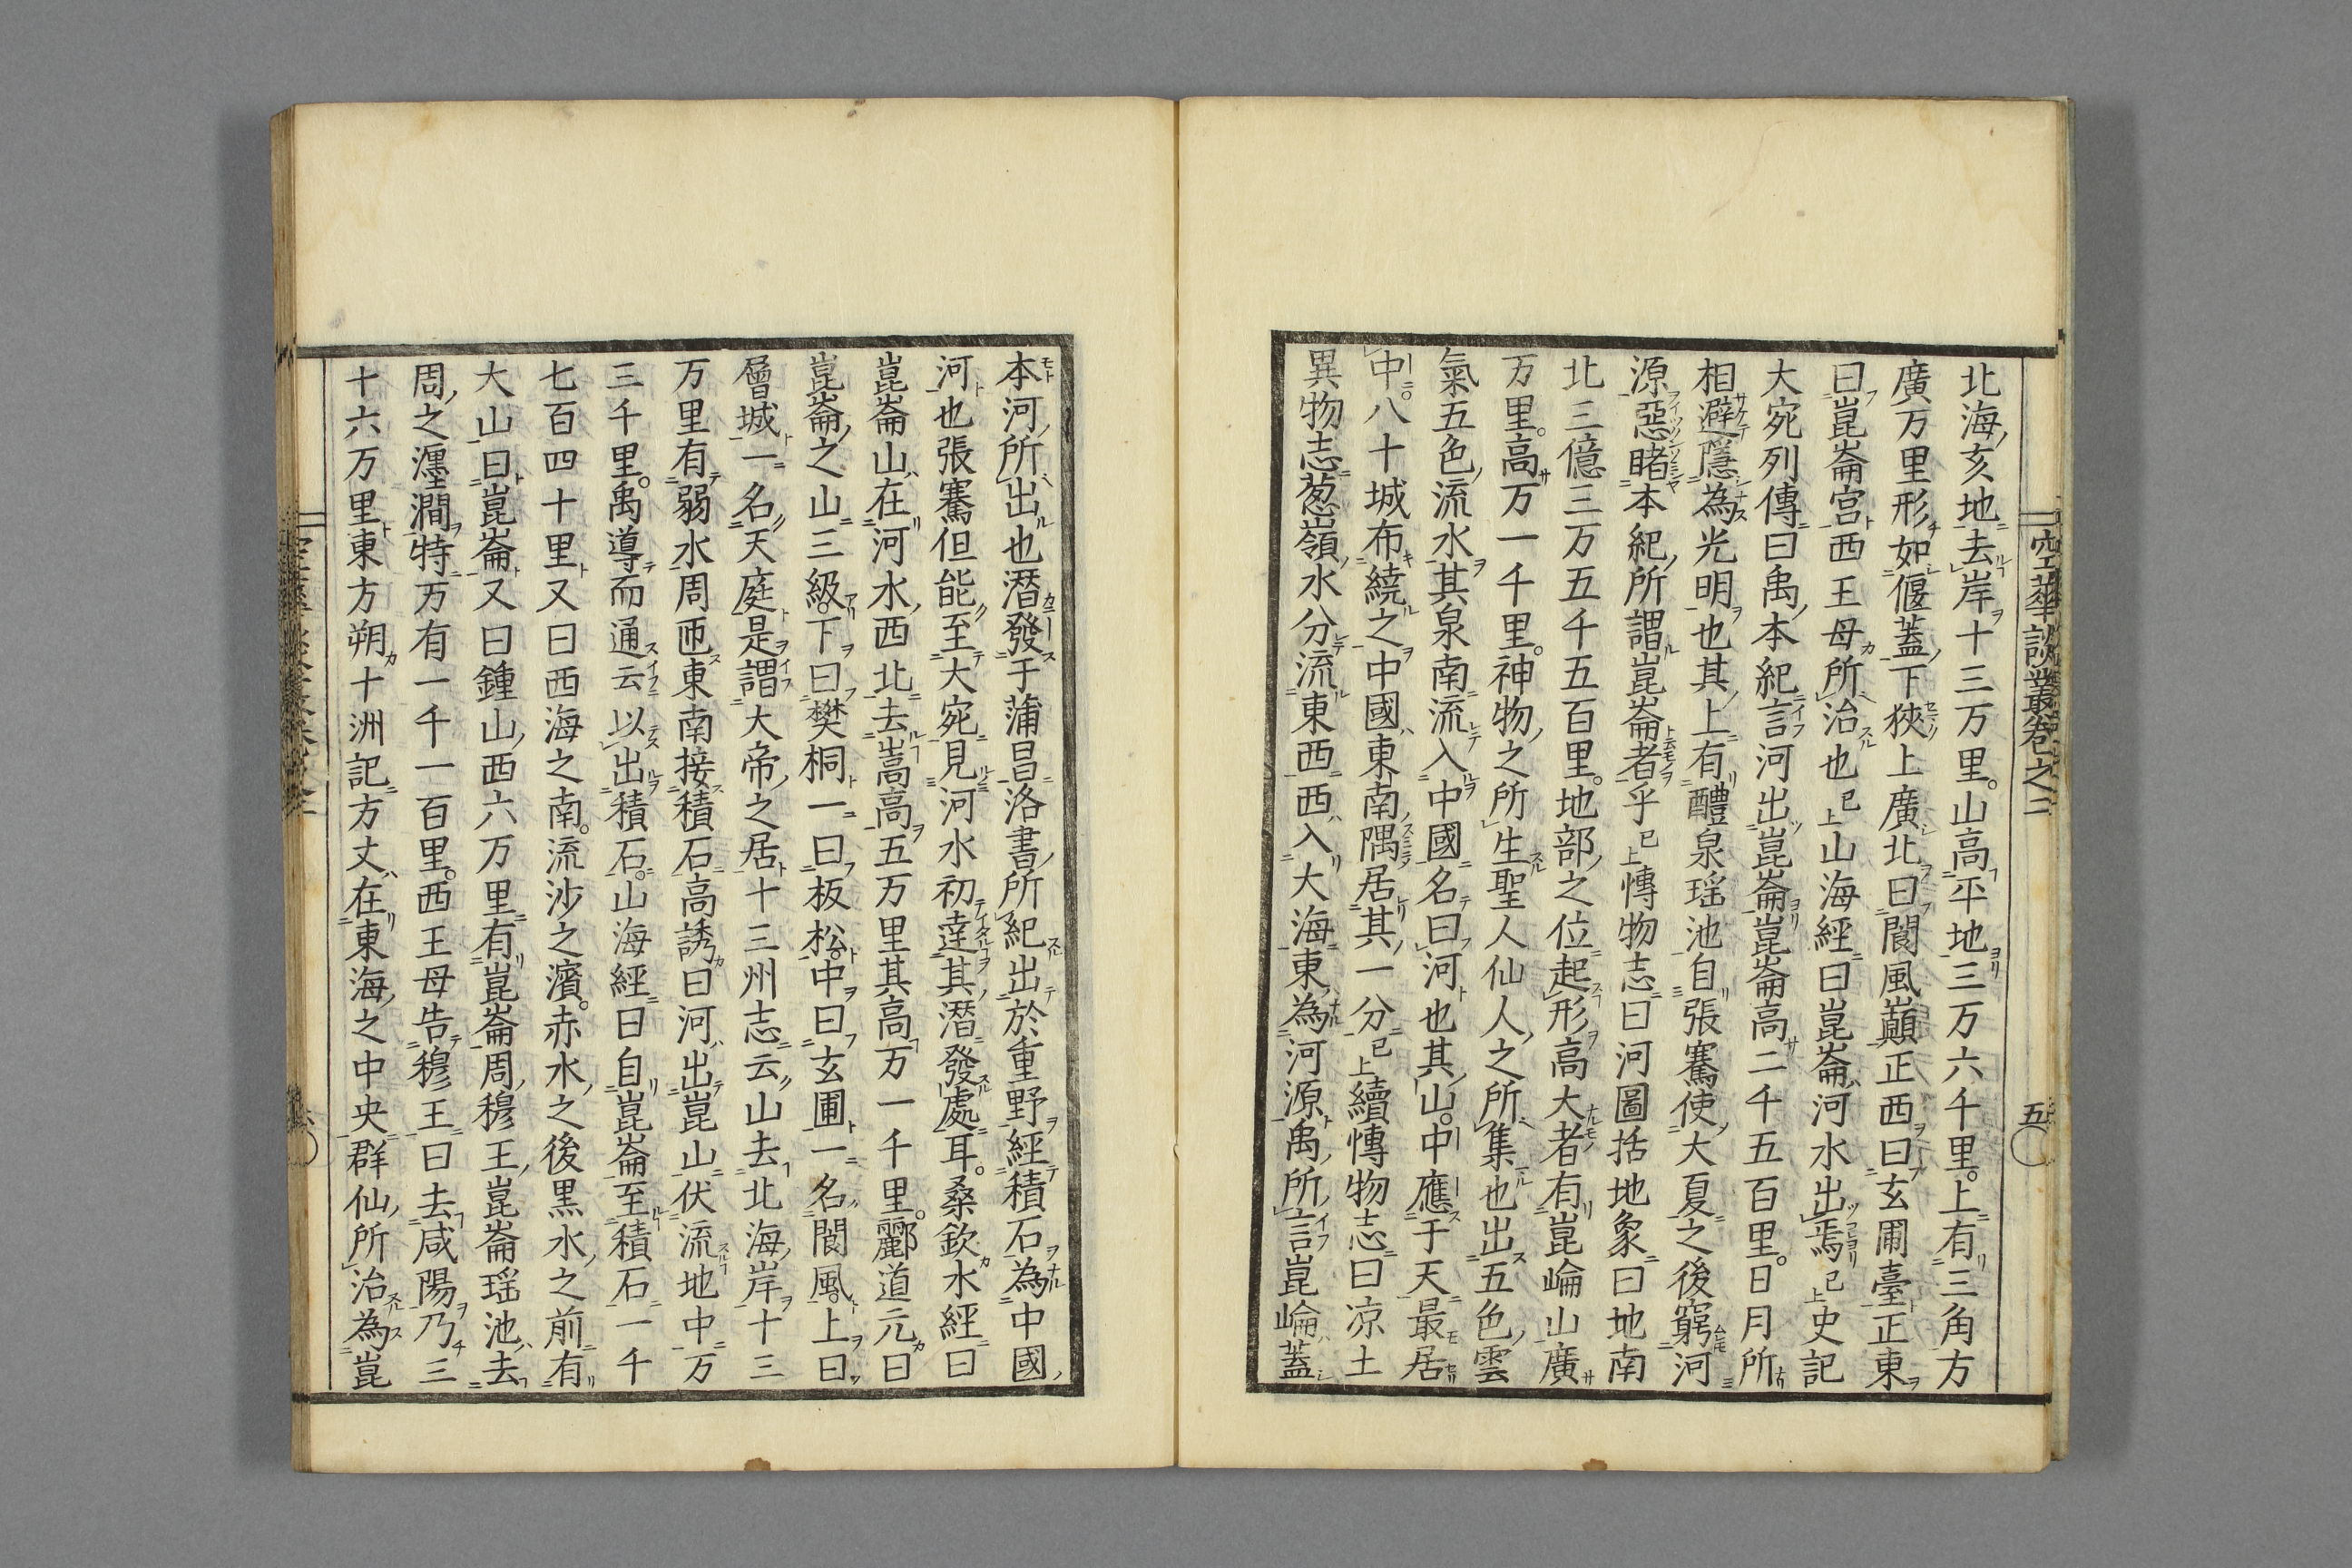 空華談叢卷之三
五
北海亥地去岸十三万里。山高平地三万六千里。上有三角方
廣万里形如偃蓋下狹上廣北曰閬風巔正西曰玄圃臺正東
曰崑崙宮西王母所治也已上山海經曰崑崙河水出焉已上史記
大宛列傳曰禹本紀言河出崑崙崑崙高二千五百里。日月所
相避隱為光明也其上有醴泉瑶池自張騫使大夏之後窮河
源惡睹本紀所謂崑崙者乎已上博物志曰河圖括地象曰地南
北三億三万五千五百里。地部之位起形高大者有崑崘山廣
万里。高万一千里。神物之所生聖人仙人之所集也出五色雲
氣五色流水其泉南流入中國名曰河也其山。中應于天最居
中。八十城布繞之中國東南隅居其一分已上續博物志曰凉土
異物志葱嶺水分流東西西入大海東為河源禹所言崑崘蓋
本河所出也潛發于蒲昌洛書所紀出於重野經積石為中國
河也張騫但能至大宛見河水初達其潛發處耳。桑欽水經曰
崑崙山在河水西北去嵩高五万里其高万一千里。酈道元曰
崑崙之山三級。下曰樊桐一曰板松。中曰玄圃一名閬風。上曰
層城一名天庭是謂大帝之居十三州志云山去北海岸十三
万里有弱水周匝東南接積石高誘曰河出崑山伏流地中万
三千里。禹導而通云以出積石。山海經曰自崑崙至積石一千
七百四十里又曰西海之南。流沙之濱。赤水之後黒水之前有
大山曰崑崙又曰鍾山西六万里有崑崙周穆王崑崙瑶池去
周之瀍澗特万有一千一百里。西王母告穆王曰去咸陽乃三
十六万里東方朔十洲記方丈在東海之中央群仙所治為崑